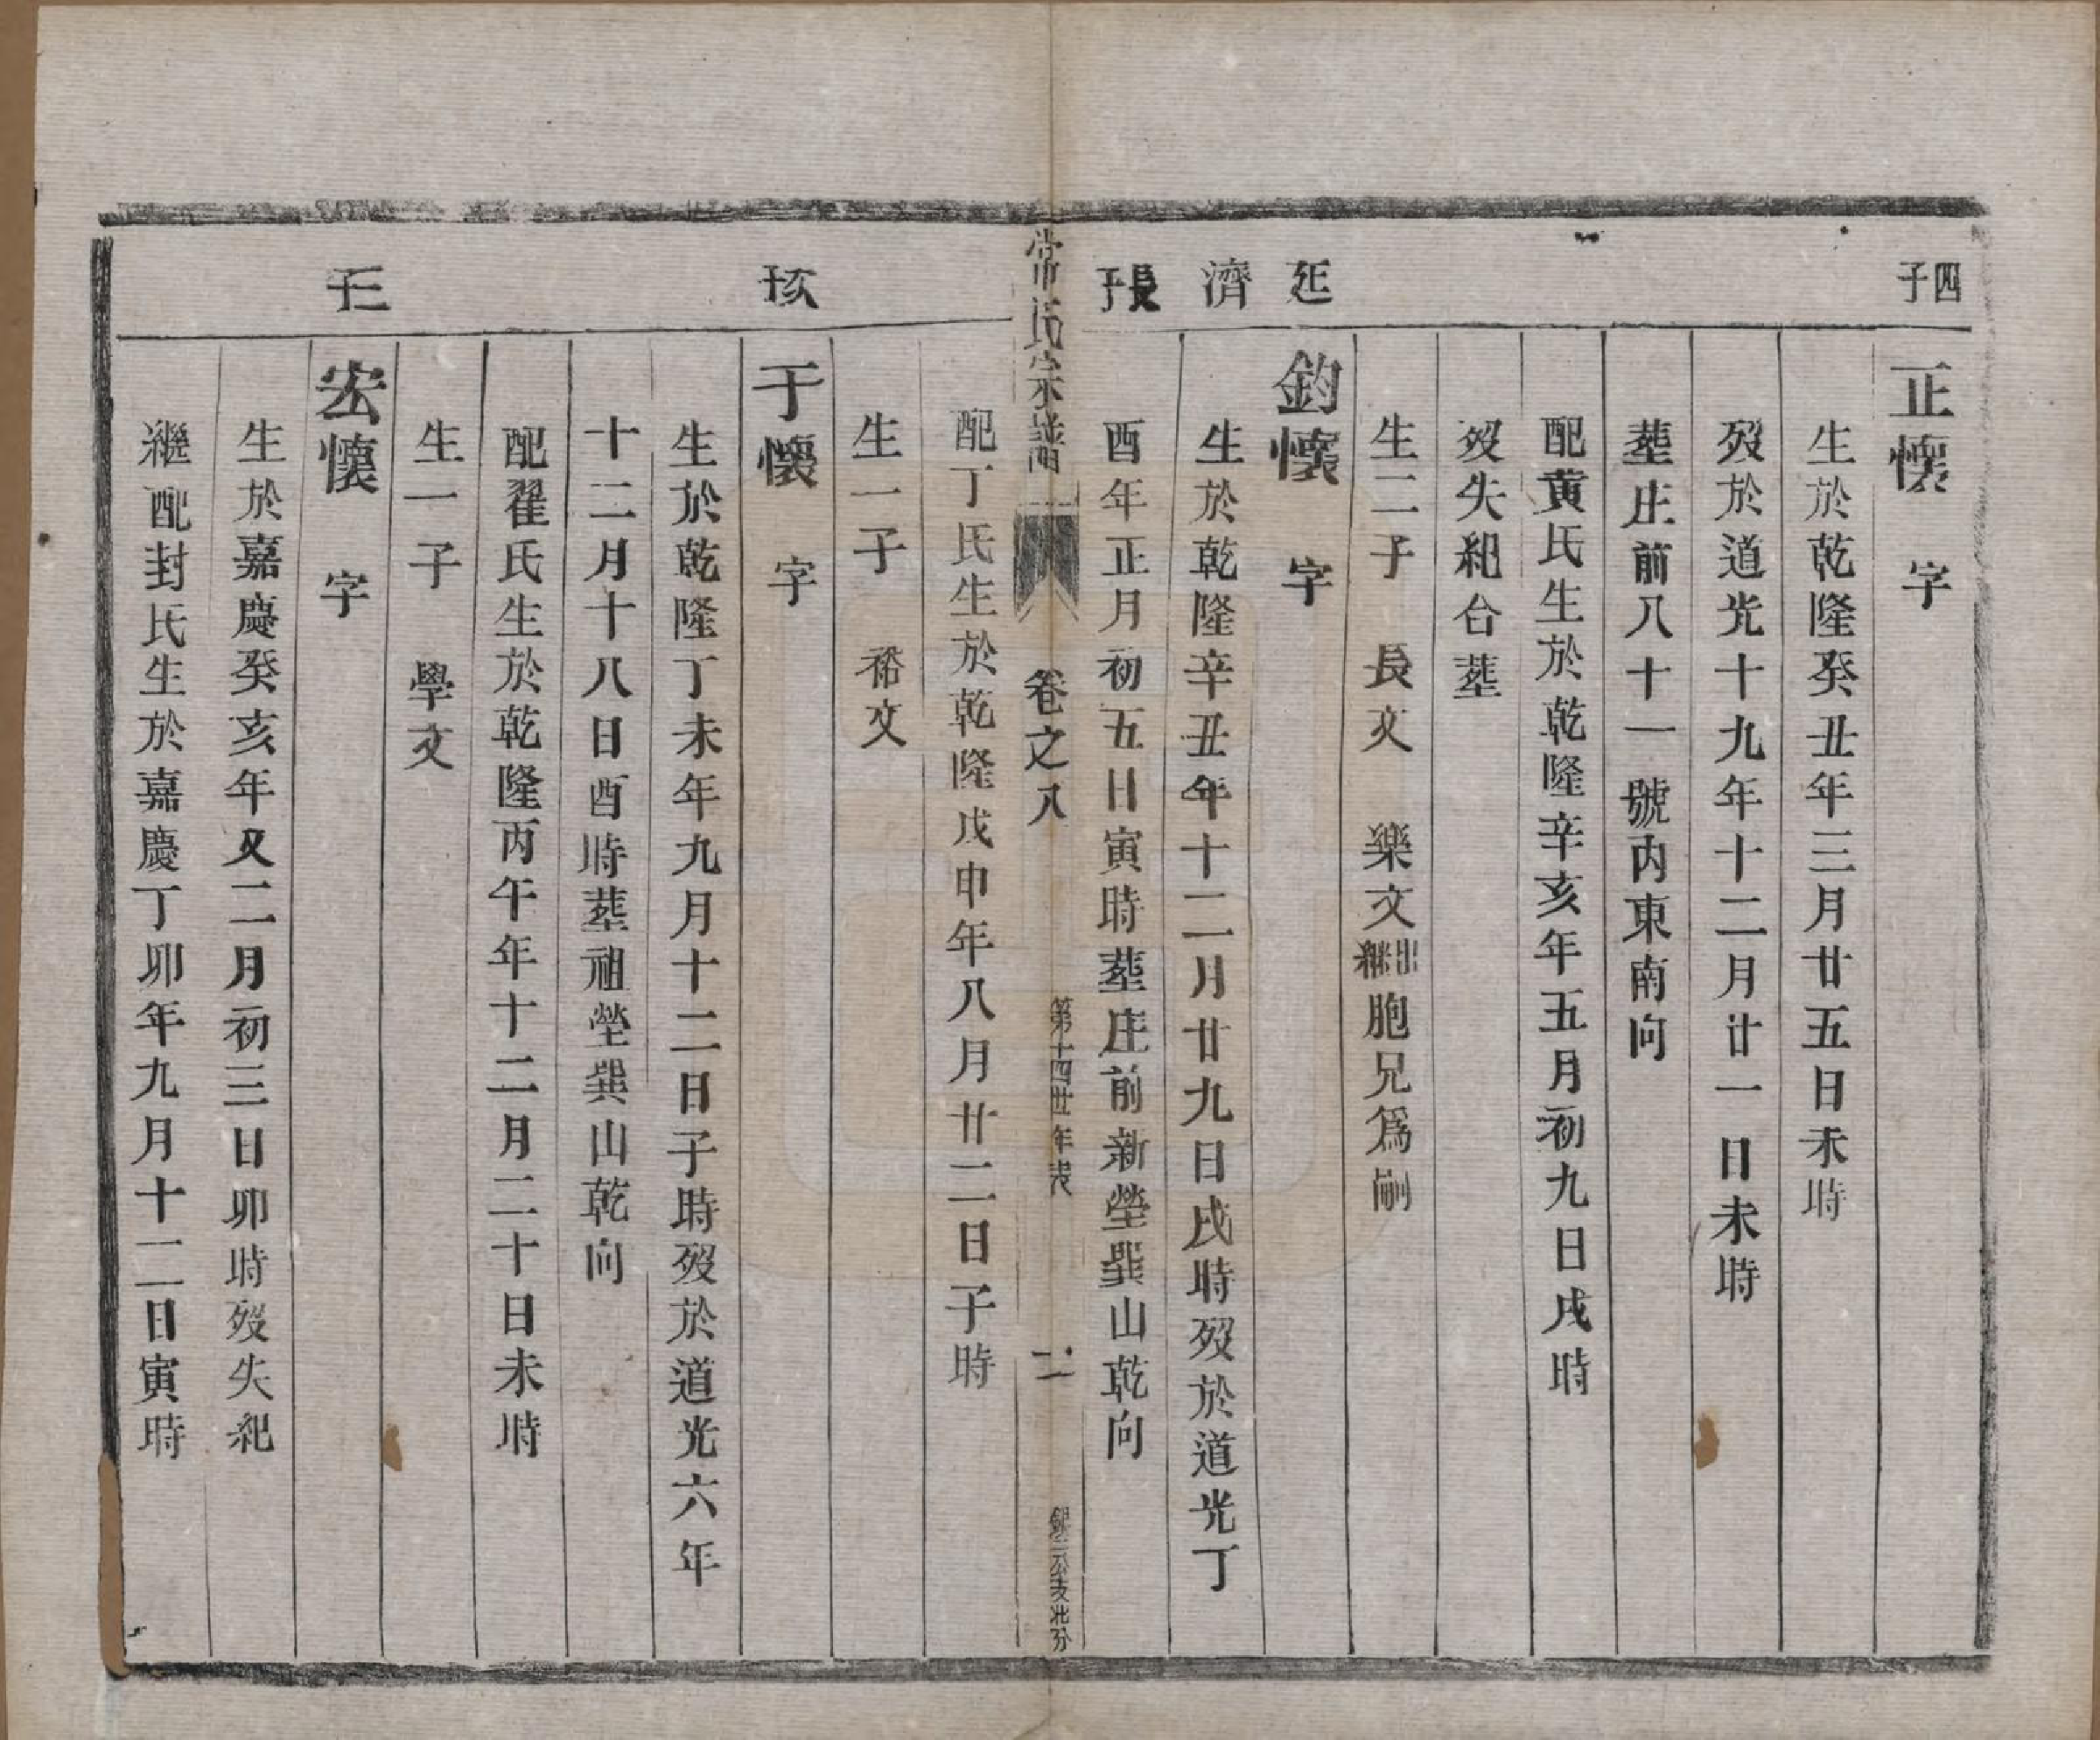 四子
正懷 字
生於乾隆癸丑年三月廿五日未時
歿於道光十九年十二月廿一日未時
塟庄前八十一號內東南向
配黃氏生於乾隆辛亥年五月初九日戌時
歿失紀合塟
生二子 長文 樂文出繼胞兄爲嗣
延濟長子
鈞懷 字
生於乾隆辛丑年十二月廿九日戌時歿於道光丁
酉年正月初五日寅時塟庄前新塋巽山乾向
常氏宗譜
卷之八
第十四世年表
二
公支北分
配丁氏生於乾隆戊申年八月廿二日子時
生一子 裕文
次子
于懷 字
生於乾隆丁未年九月十二日子時歿於道光六年
十二月十八日酉時塟祖塋巽山乾向
配翟氏生於乾隆丙午年十二月二十日未時
生一子 學文
三子
宏懷 字
生於嘉慶癸亥年又二月初三日卯時歿失紀
繼配封氏生於嘉慶丁卯年九月十二日寅時